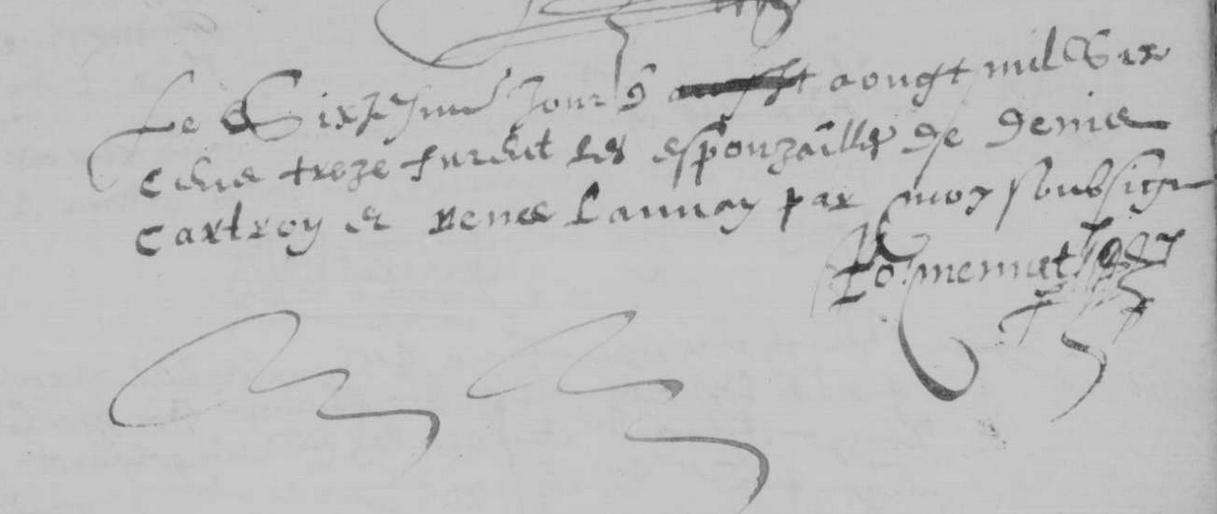 Le Sixiesme Jour d aougst mil Six
cens treze furent les espouzailles de denis
Cartroy et renee Launay par moy soubsign